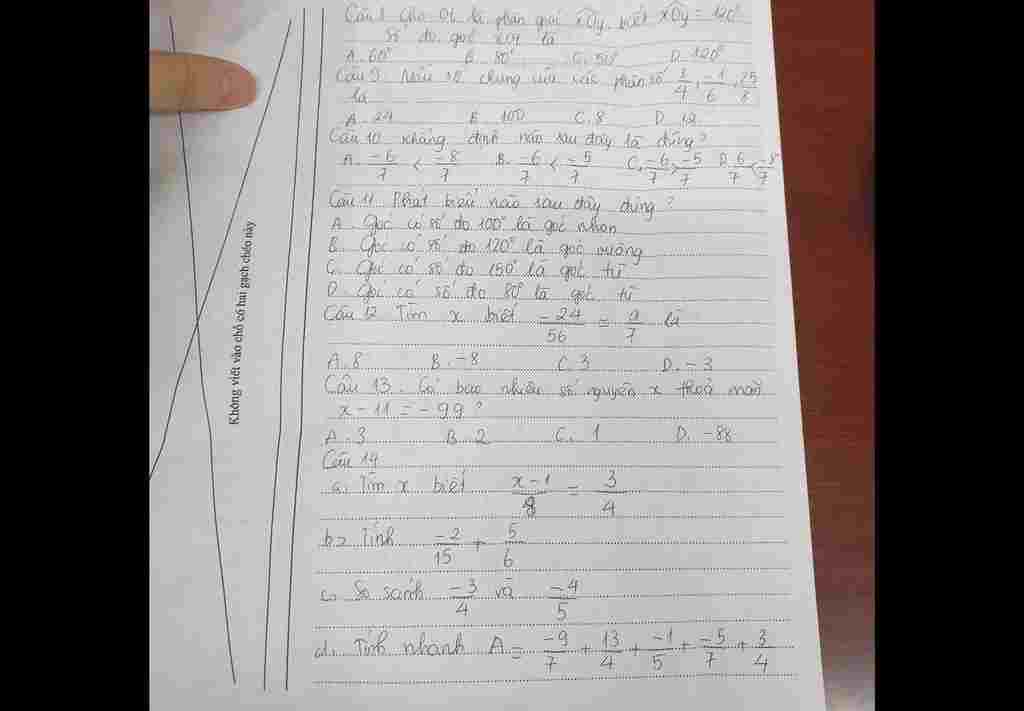 Câu 8 Cho Ot là phân giác xOy, biết xOy = 120°
Số đo góc xOt là
A. 60° B. 80° C. 50° D. 120°
Câu 9 Mẫu số chung của các phân số 3/4, -1/6, 25/8
là
A. 24 B. 100 C. 8 D. 12
Câu 10 Khẳng định nào sau đây là đúng?
A. -6/7 < -8/7 B. -6/7 < -5/7 C. -6/7 > -5/7 D. 6/7 < -8/7
Câu 11 Phát biểu nào sau đây đúng?
A. Góc có số đo 100° là góc nhọn
B. Góc có số đo 120° là góc vuông
C. Góc có số đo 150° là góc tù
D. Góc có số đo 80° là góc tù
Câu 12 Tìm x biết -24/56 = /7 là
A. 8 B. -8 C. 3 D. -3
Câu 13. Có bao nhiêu số nguyên x thoả mãn
x - 11 = -99?
A. 3 B. 2 C. 1 D. -88
Câu 14
a. Tìm x biết x-1/8 = 3/4
b> Tính -2/15 + 5/6
c. So sánh -3/4 và -4/5
d. Tính nhanh A = -9/7 + 13/4 + -1/5 + -5/7 + 3/4
Không viết vào chỗ có hai gạch chéo này